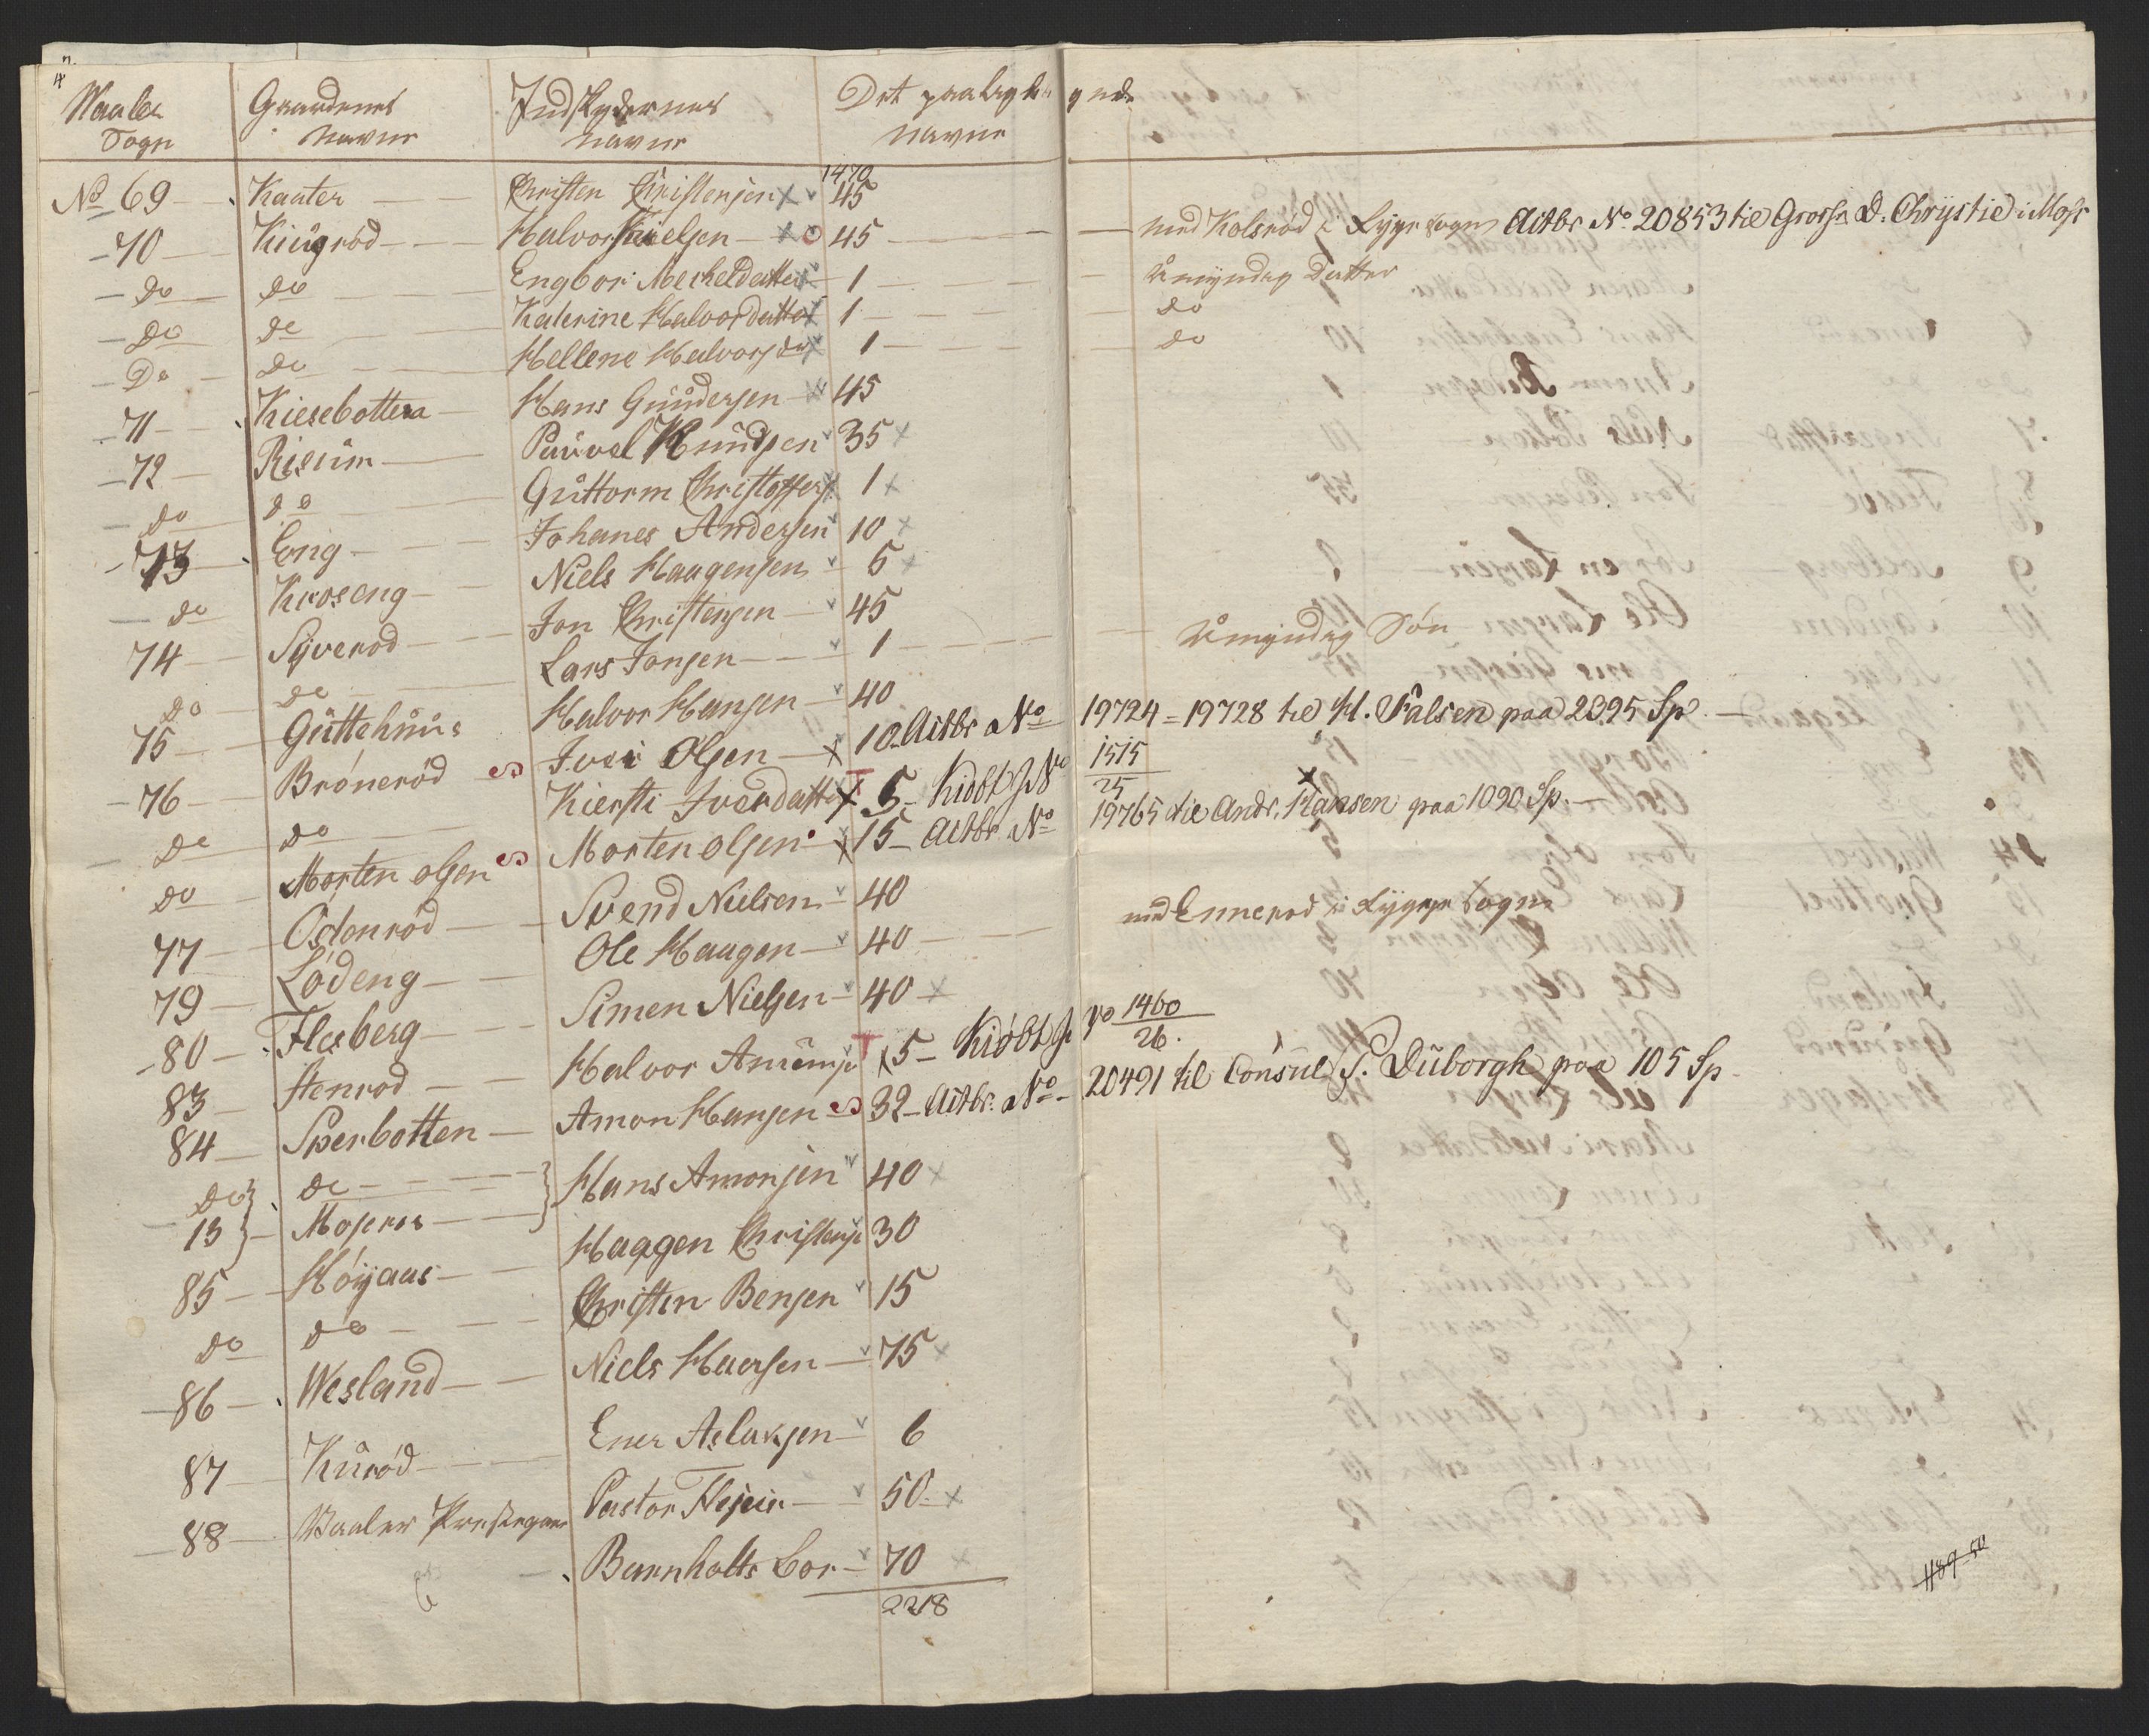 4
Waaler Sogn | Gaardenes navne | Indskydernes navne | Det paalagte navne
1470
No 69 Kaater Christen Christensen x v 45
70 Kiügrød Halvor Nielsen x 45 med Kolsrød i Rygge sogn Actbr No 20853 til Gross. D. Chrystie i Moss
do do Engbor Mecheldatter x 1 Umyndig Datter
do do Katerine Halvordatter x 1 do
do do Hellene Halvorsdr x 1 do
71 Kiesebottena Hans Gündersen v 45
72 Risüm Paüvel Knüdsen v 35 x
do do Güttorm Christoffers x 1 x
73 Eng Johanes Andersen v 10 x
do Kroseng Niels Haagensen v 5 x
74 Syverød Jon Christensen v 45
do do Lars Jonsen v 1 Umyndig Søn
75 Güttehüüs Halvor Hansen v 40
76 Brønerød Iver Olsen x 10 Actbr No 19724 = 19728 til H. Falsen paa 2095 Sp
do do Kiersti Iverdatter x 5 Kiøbt J No 1515/25
do Morten olsen Morten olsen x 15 Actbr No 19765 til Andr. Hansen paa 1090 Sp.
77 Ødenrød Svend Nielsen v 40
79 Lødeng Ole Haagen v 40 med Ennerød i Rygge Sogn
80 Flesberg Simen Nielsen v 40 x
83 Stenrød Halvor Amüns x 5 Kiøbt J No 1460/26.
84 Sperbotten Amon Hansen 32 Actbr. No 20491 til Consul P. Düborgh paa 105 Sp
do do } Hans Amonsen v 40 x
13 } Moseros
85 Høyaas Haagen Christens v 30
do do Christen Bensen v 15
86 Wesland Niels Haansen v 75 x
87 Kürød Ener Aslaksen v 6
88 Vaaler Præstegaar Pastor Flejer v 50 x
Barnholts Cor v 70 x
2218
1189-50